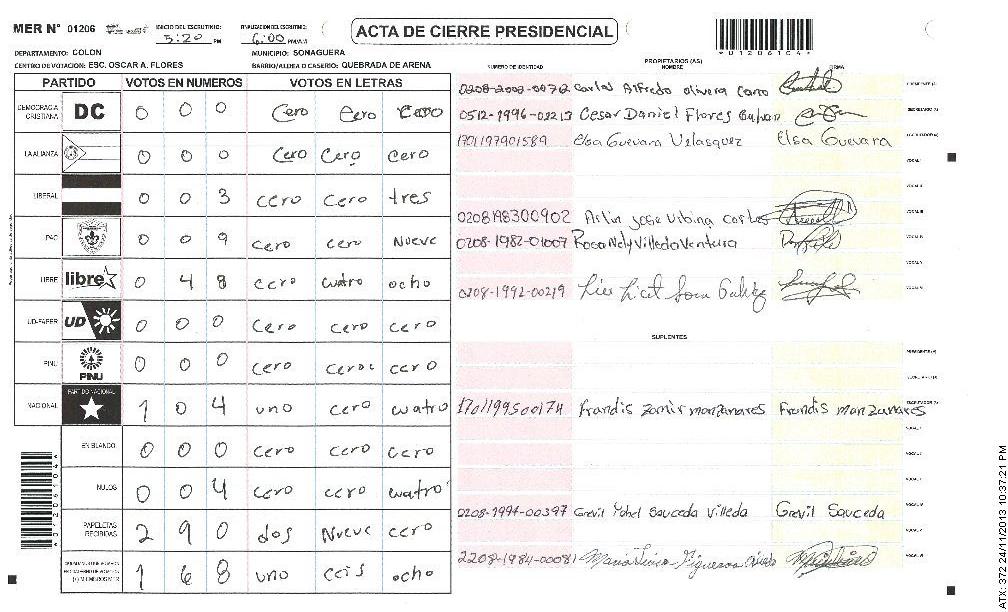 MER N° 01206 INICIO DEL ESCRUTINIO: 5:20 PM FINALIZACION DEL ESCRUTINIO: 6:00 PM/AM ACTA DE CIERRE PRESIDENCIAL
DEPARTAMENTO: COLON MUNICIPIO: SONAGUERA
CENTRO DE VOTACION: ESC. OSCAR A. FLORES BARRIO/ALDEA O CASERIO: QUEBRADA DE ARENA
PARTIDO VOTOS EN NUMEROS VOTOS EN LETRAS
DEMOCRACIA CRISTIANA DC 0 0 0 Cero Cero Cero
LA ALIANZA 0 0 0 Cero Cero Cero
LIBERAL 0 0 3 cero cero tres
PAC 0 0 9 cero cero Nueve
LIBRE libre 0 4 8 cero cuatro ocho
UD-FAPER UD 0 0 0 cero cero cero
PINU PINU 0 0 0 cero cero cero
NACIONAL PARTIDO NACIONAL 1 0 4 uno cero cuatro
EN BLANCO 0 0 0 cero cero cero
NULOS 0 0 4 cero cero cuatro
PAPELETAS RECIBIDAS 2 9 0 dos Nueve cero
1 6 8 uno ceis ocho
NUMERO DE IDENTIDAD PROPIETARIOS (AS) NOMBRE FIRMA
Carlos Alfredo Olivera
0512-1996-02213 Cesar Daniel Flores
1701197901589 Elsa Guevara Velasquez Elsa Guevara
0208198300902 Arlin Jose Urbina
0208-1982-01007 Rosa Nely Villeda Ventura
0208-1992-00219
SUPLENTES
1701199500174 Frandis zamir manzanares Frandis manzanares
0208-1994-00397 Grevil Yohel Sauceda Villeda Grevil Sauceda
2208-1984-00081
ATX: 372 24/11/2013 10:37:21 PM